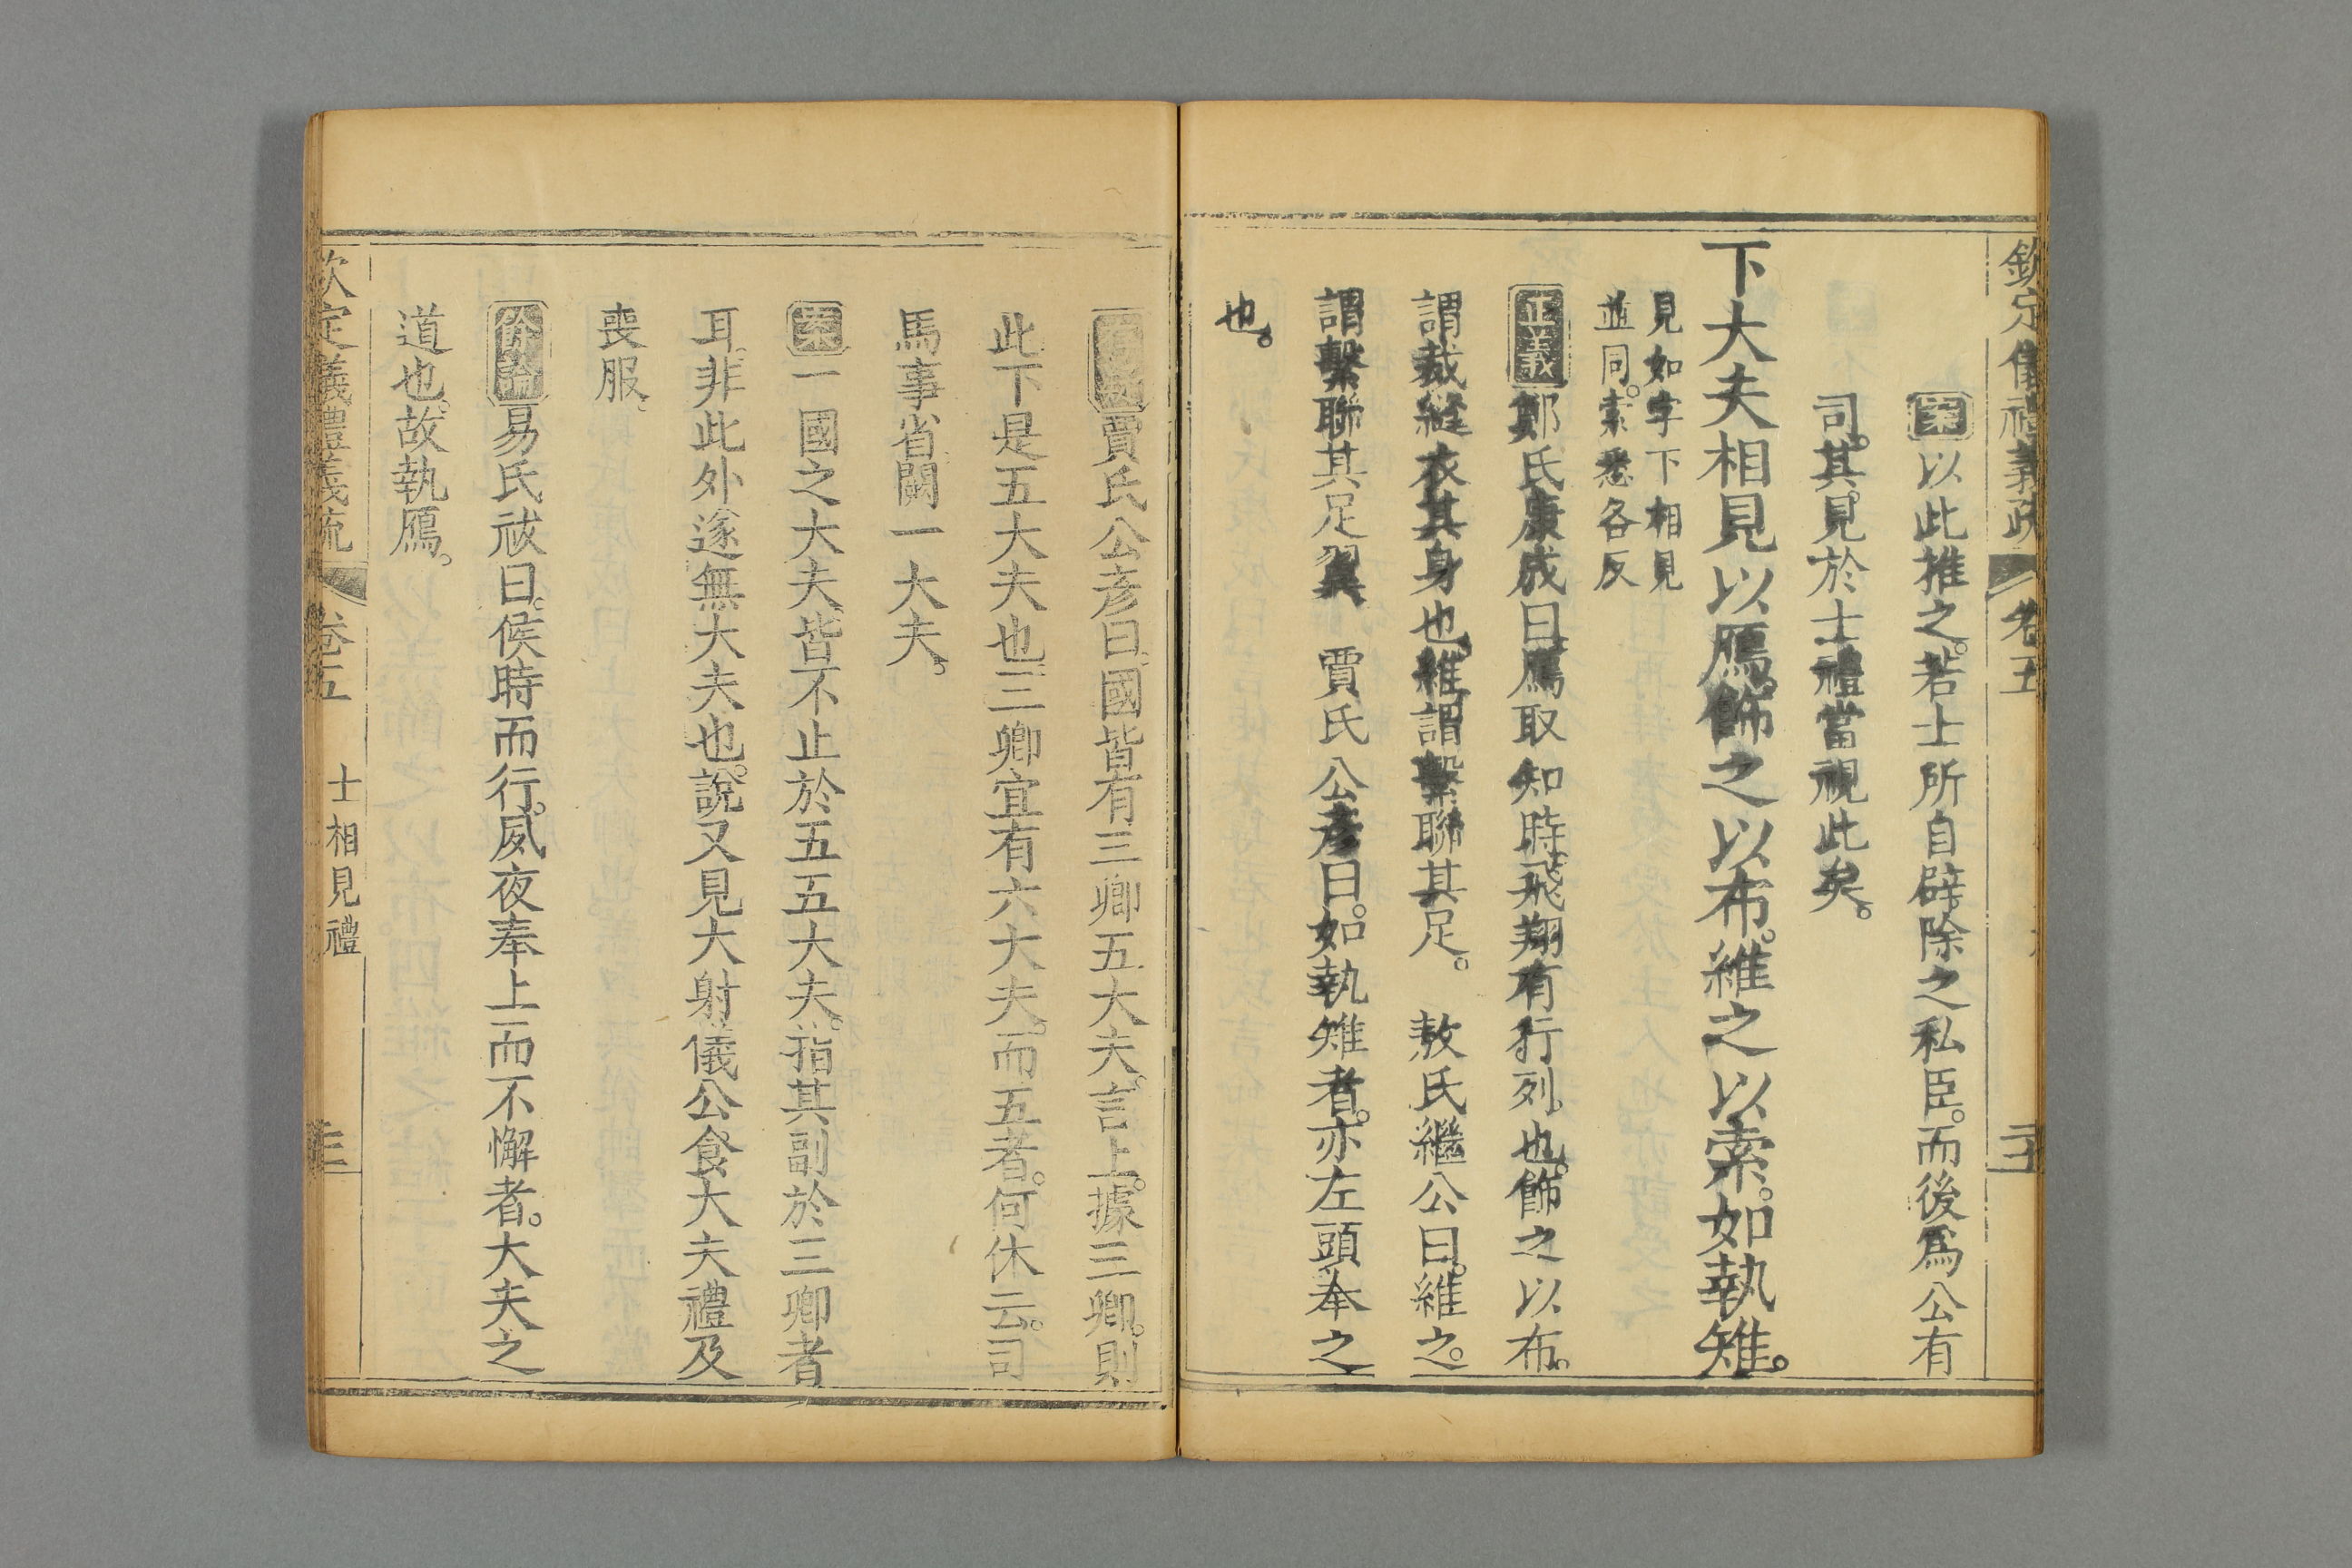 欽定儀禮義疏 卷五
案以此推之。若士所自辟除之私臣。而後爲公有
司。其見於士禮當視此矣。
下大夫相見以鴈。飾之以布。維之以索。如執雉。
見如字下相見
並同。索悉各反
正義鄭氏康成曰。鴈取知時。飛翔有行列也。飾之以布。
謂裁縫衣其身也。維謂繫聯其足。 敖氏繼公曰。維之。
謂繫聯其足翼 賈氏公彥曰。如執雉者。亦左頭奉之
也。
賈氏公彥曰。國皆有三卿五大夫。言上。據三卿。則
此下是五大夫也。三卿宜有六大夫。而五者。何休云。司
馬事省闕一大夫。
案一國之大夫。皆不止於五。五大夫。指其副於三卿者
耳。非此外遂無大夫也。說又見大射儀公食大夫禮及
喪服。
餘論易氏祓曰。候時而行。夙夜奉上而不懈者。大夫之
道也。故執鴈。
欽定儀禮義疏 卷五 士相見禮